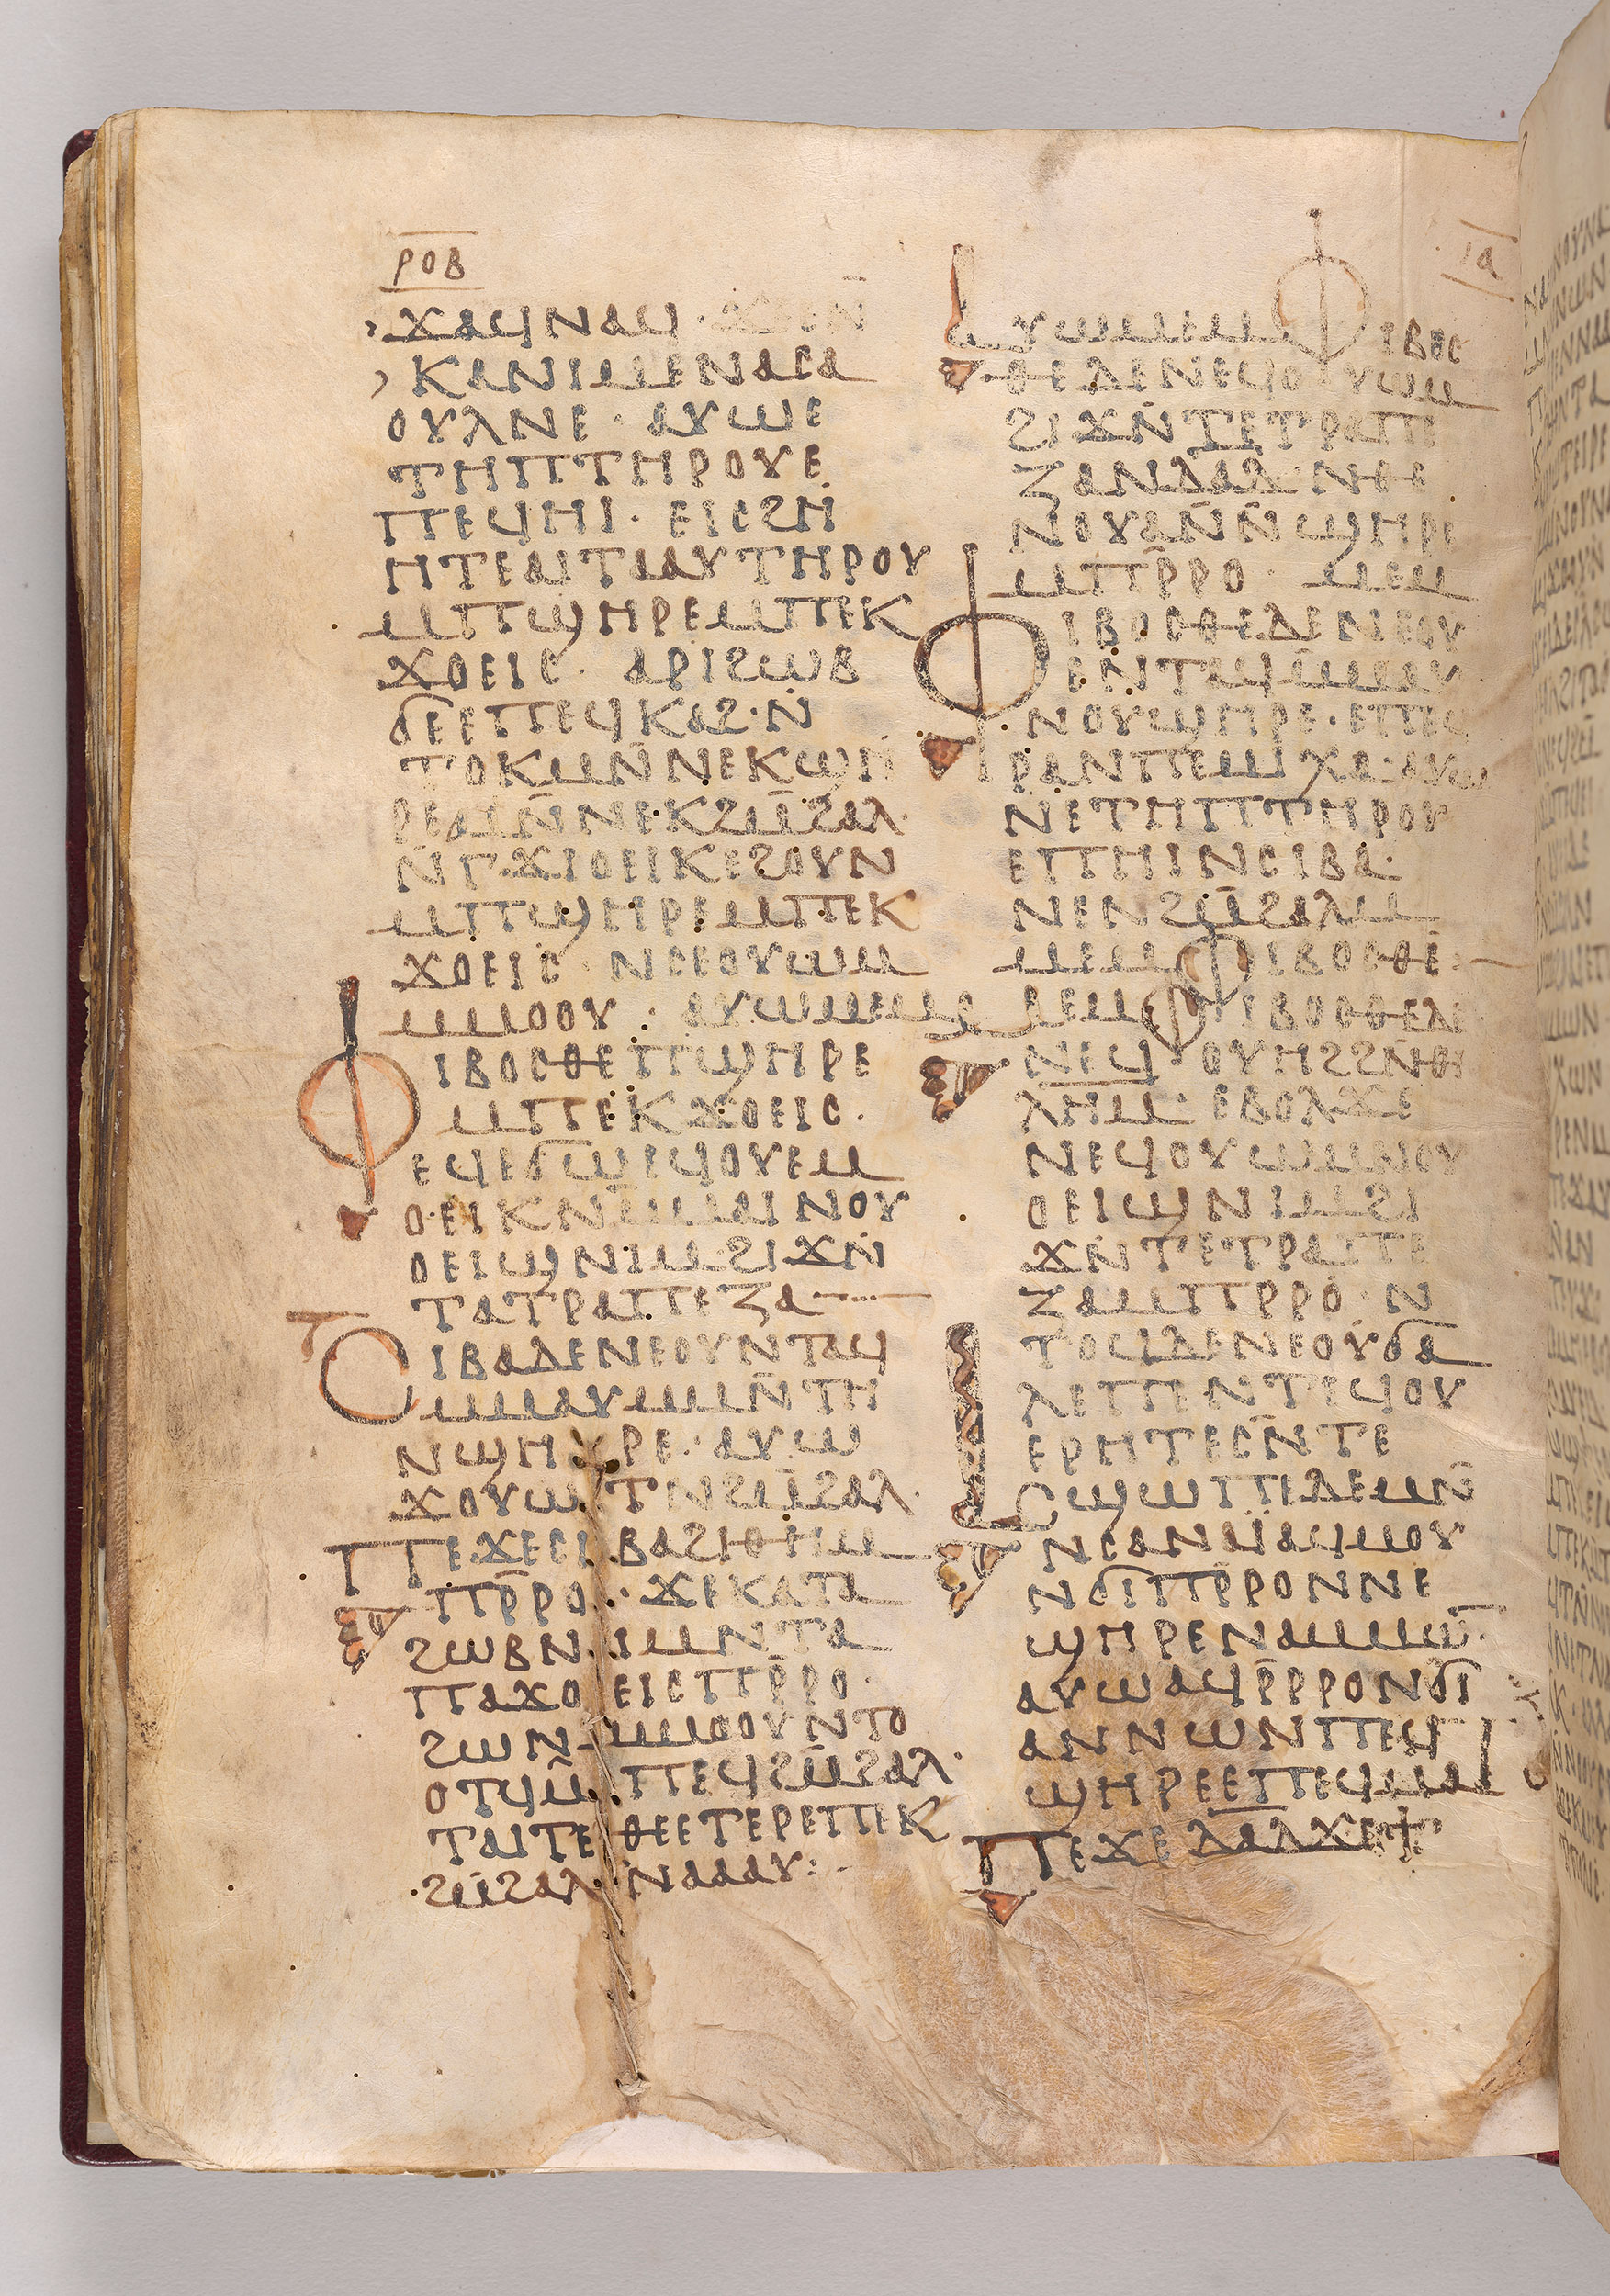 ⲣⲟⲃ
ⲓⲁ
ϫⲁϥⲛⲁϥ ·
ⲕⲁⲛⲓⲙⲉⲛⲁⲥⲁ
ⲟⲩⲗⲛⲉ · ⲁⲩⲱⲉ
ⲧⲏⲡⲧⲏⲣⲟⲩⲉ
ⲡⲉϥⲏⲓ · ⲉⲓⲥϩⲏ
ⲏⲧⲉⲁⲓⲧⲁⲁⲩⲧⲏⲣⲟⲩ
ⲙⲡϣⲏⲣⲉⲙⲡⲉⲕ
ϫⲟⲉⲓⲥ · ⲁⲣⲓϩⲱⲃ
ϭⲉⲉⲡⲉϥⲕⲁϩ · ⲛ̇
ⲧⲟⲕⲙⲛ̄ⲛⲉⲕϣⲏ
ⲣⲉⲙⲛ̄ⲛⲉⲕϩⲙ̄ϩⲁⲗ ·
ⲛ̄ⲅϫⲓⲟⲉⲓⲕⲉϩⲟⲩⲛ
ⲙⲡϣⲏⲣⲉⲙⲡⲉⲕ
ϫⲟⲉⲓⲥ · ⲛⲥⲉⲟⲩⲱⲙ
ⲙⲙⲟⲟⲩ · ⲁⲩⲱⲙⲉⲙ
ⲫⲓⲃⲟⲥⲑⲉⲡϣⲏⲣⲉ
ⲙⲡⲉⲕϫⲟⲉⲓⲥ ·
ⲉϥⲉϭⲱⲉϥⲟⲩⲉⲙ
ⲟⲉⲓⲕⲛ̄ⲙⲙⲁⲓⲛⲟⲩ
ⲟⲉⲓϣⲛⲓⲙϩⲓϫⲛ̇
ⲧⲁⲧⲣⲁⲡⲉⲍⲁ
ⲥⲓⲃⲁⲇⲉⲛⲉⲟⲩⲛⲧⲁϥ
ⲙⲙⲁⲩⲙⲙⲛ̄ⲧⲏ
ⲛϣⲏⲣⲉ · ⲁⲩⲱ
ϫⲟⲩⲱⲧⲛϩⲙ̄ϩⲁⲗ ·
ⲡⲉϫⲉⲥⲓⲃⲁϩⲓⲑⲏⲙ
ⲡⲣ̄ⲣⲟ · ϫⲉⲕⲁⲧⲁ
ϩⲱⲃⲛⲓⲙⲛⲧⲁ
ⲡⲁϫⲟⲉⲓⲥⲡⲣ̄ⲣⲟ ·
ϩⲱⲛⲙⲙⲟⲟⲩⲛⲧⲟ
ⲟⲧϥⲙ̄ⲡⲉϥϩⲙ̄ϩⲁⲗ ·
ⲧⲁⲓⲧⲉⲑⲉⲉⲧⲉⲣⲉⲡⲉⲕ
ϩⲙ̄ϩⲁⲗⲛⲁⲁⲁⲩ :
ⲁⲩⲱⲙⲉⲙⲫⲓⲃⲟⲥ
ⲑⲉⲇⲉⲛⲉϥⲟⲩⲱⲙ
ϩⲓϫⲛ̇ⲧⲉⲧⲣⲁⲡⲉ
ⲍⲁⲛⲇⲁⲇ · ⲛⲑⲉ
ⲛⲟⲩⲁⲛ̄ⲛ̄ϣⲏⲣⲉ
ⲙⲡⲣ̄ⲣⲟ · ⲙⲉⲙ
ⲫⲓⲃⲟⲥⲑⲉⲇⲉⲛⲉⲟⲩ
ⲉⲛⲧⲁϥⲙ̄ⲙⲁⲩ
ⲛⲟⲩϣⲏⲣⲉ · ⲉⲡⲉϥ
ⲣⲁⲛⲡⲉⲙⲓⲭⲁ · ⲁⲩⲱ
ⲛⲉⲧⲏⲡⲧⲏⲣⲟⲩ
ⲉⲡⲏⲓⲛⲥⲓⲃⲁ ·
ⲛⲉⲛϩⲙ̄ϩⲁⲗⲙ
ⲙⲉⲙⲫⲓⲃⲟⲥⲑⲉ :
ⲙⲉⲙⲫⲓⲃⲟⲥⲑⲉⲇⲉ
ⲛⲉϥⲟⲩⲏϩϩⲛ̄ⲑⲓ
ⲗⲏⲙ · ⲉⲃⲟⲗϫⲉ
ⲛⲉϥⲟⲩⲱⲙⲛⲟⲩ
ⲟⲉⲓϣⲛⲓⲙϩⲓ
ϫⲛ̇ⲧⲉⲧⲣⲁⲡⲉ
ⲍⲁⲙⲡⲣⲣⲟ · ⲛ
ⲧⲟϥⲇⲉⲛⲉⲟⲩϭⲁ
ⲗⲉⲡⲉⲛⲧⲉϥⲟⲩ
ⲉⲣⲏⲧⲉⲥ̄ⲛⲧⲉ
ⲁⲥϣⲱⲡⲉⲇⲉⲙⲛ̄
ⲛⲥⲁⲛⲁⲓ̈ⲁϥⲙⲟⲩ
ⲛϭⲓⲡⲣ̄ⲣⲟⲛⲛⲉ
ϣⲏⲣⲉⲛⲁⲙⲙⲱ̄ ·
ⲁⲩⲱⲁϥⲣ̄ⲣⲣⲟⲛϭⲓ
ⲁⲛⲛⲱⲛⲡⲉϥ
ϣⲏⲣⲉⲉⲡⲉϥⲙⲁ
ⲡⲉϫⲉⲇⲁⲇϫⲉϯ